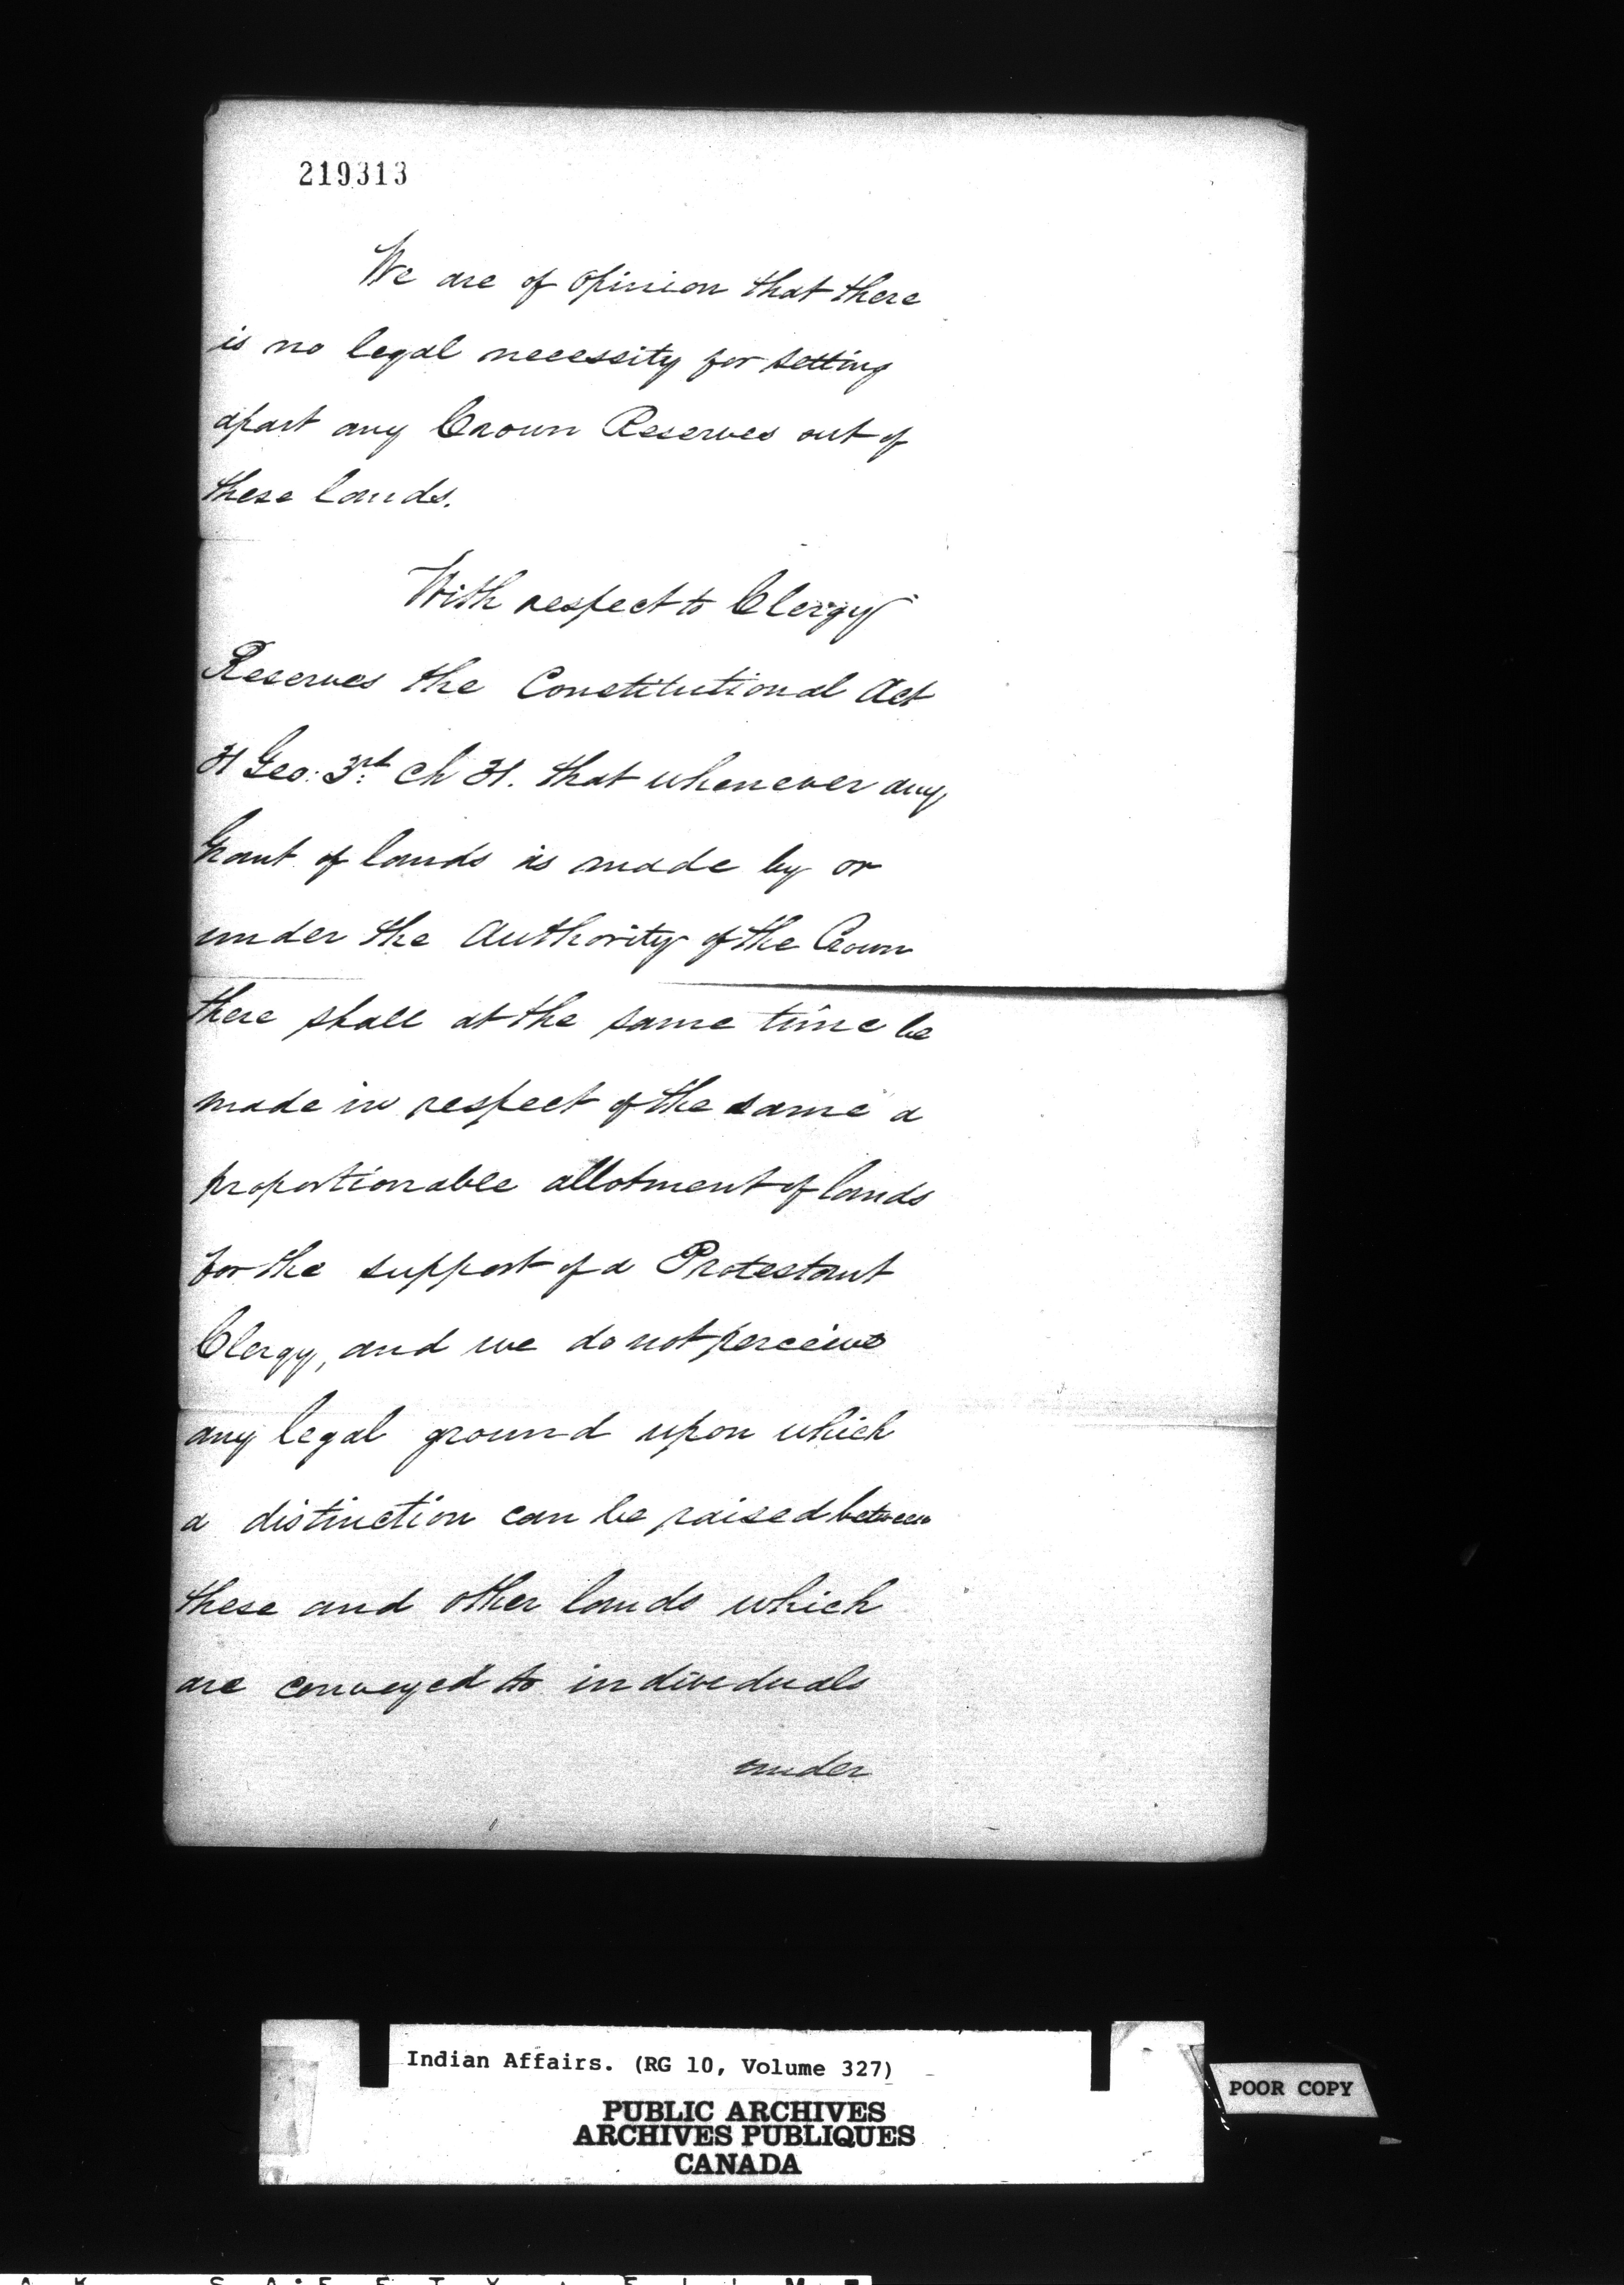 219313
We are of opinion that there
is no legal necessity for setting
apart any Crown Reserves out of
these lands.
With respect to Clergy
Reserves the Constitutional Act
31 Geo: 3rd Ch 31. that whenever any
Grant of lands is made by or
under the Authority of the Crown
there shall at the same time be
made in respect of the same a
proportionable allotment of lands
for the support of a Protestant
Clergy, and we do not perceive
any legal ground upon which
a distinction can be raised between
these and other lands which
are conveyed to individuals
under
Indian Affairs. (RG 10, Volume 327)
PUBLIC ARCHIVES
ARCHIVES PUBLIQUES
CANADA
POOR COPY